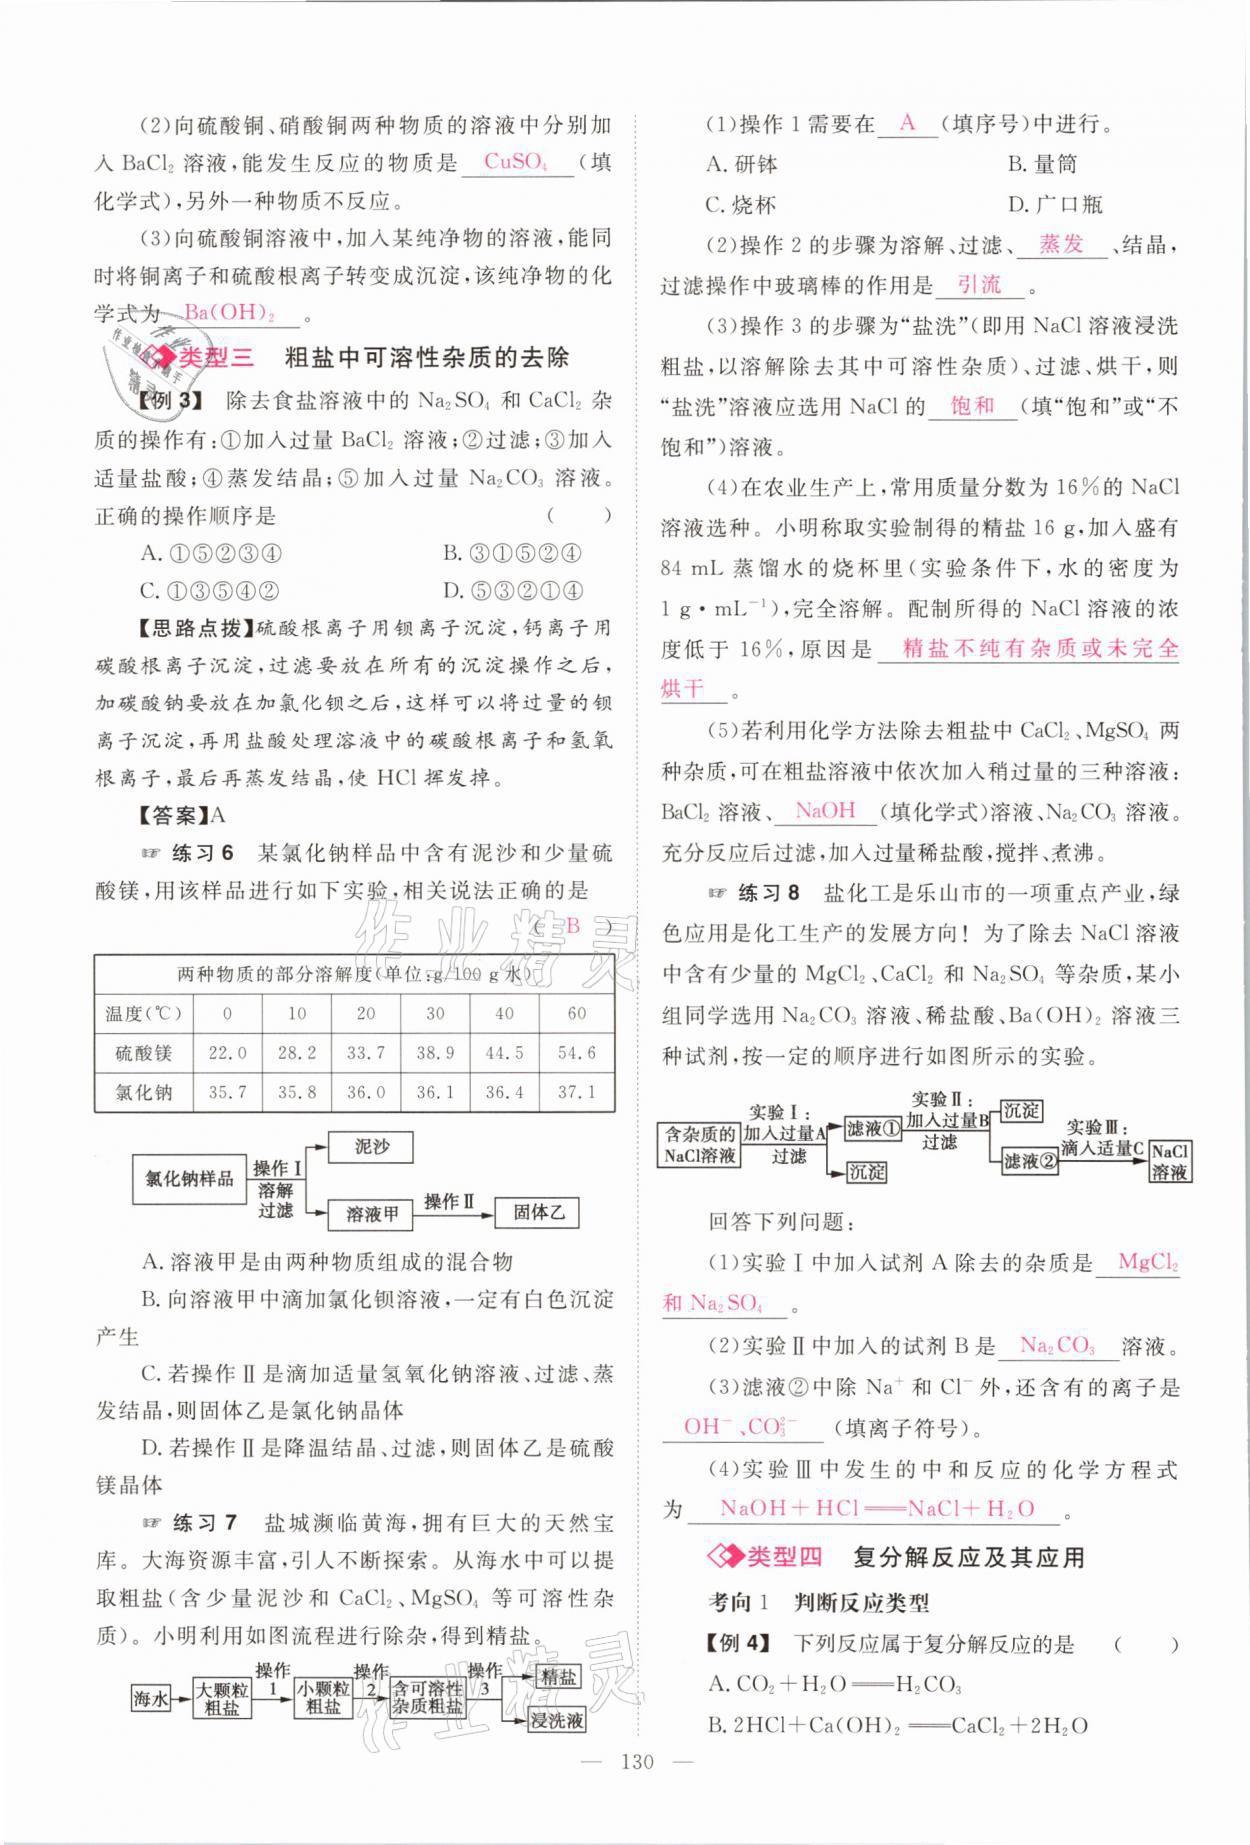 (2)向硫酸铜、硝酸铜两种物质的溶液中分别加
入 BaCl₂ 溶液,能发生反应的物质是 CuSO₄ (填
化学式),另外一种物质不反应。
(3)向硫酸铜溶液中,加入某纯净物的溶液,能同
时将铜离子和硫酸根离子转变成沉淀,该纯净物的化
学式为 Ba(OH)₂ 。
类型三 粗盐中可溶性杂质的去除
【例 3】 除去食盐溶液中的 Na₂SO₄ 和 CaCl₂ 杂
质的操作有:①加入过量 BaCl₂ 溶液;②过滤;③加入
适量盐酸;④蒸发结晶;⑤加入过量 Na₂CO₃ 溶液。
正确的操作顺序是 ( )
A. ①⑤②③④ B. ③①⑤②④
C. ①③⑤④② D. ⑤③②①④
【思路点拨】硫酸根离子用钡离子沉淀,钙离子用
碳酸根离子沉淀,过滤要放在所有的沉淀操作之后,
加碳酸钠要放在加氯化钡之后,这样可以将过量的钡
离子沉淀,再用盐酸处理溶液中的碳酸根离子和氢氧
根离子,最后再蒸发结晶,使 HCl 挥发掉。
【答案】A
☞ 练习 6 某氯化钠样品中含有泥沙和少量硫
酸镁,用该样品进行如下实验,相关说法正确的是
( B )
两种物质的部分溶解度(单位:g/100 g 水)
温度(℃) 0 10 20 30 40 60
硫酸镁 22.0 28.2 33.7 38.9 44.5 54.6
氯化钠 35.7 35.8 36.0 36.1 36.4 37.1
氯化钠样品 操作Ⅰ 溶解 过滤 泥沙
溶液甲 操作Ⅱ 固体乙
A. 溶液甲是由两种物质组成的混合物
B. 向溶液甲中滴加氯化钡溶液,一定有白色沉淀
产生
C. 若操作Ⅱ是滴加适量氢氧化钠溶液、过滤、蒸
发结晶,则固体乙是氯化钠晶体
D. 若操作Ⅱ是降温结晶、过滤,则固体乙是硫酸
镁晶体
☞ 练习 7 盐城濒临黄海,拥有巨大的天然宝
库。大海资源丰富,引人不断探索。从海水中可以提
取粗盐(含少量泥沙和 CaCl₂、MgSO₄ 等可溶性杂
质)。小明利用如图流程进行除杂,得到精盐。
海水 大颗粒粗盐 操作1 小颗粒粗盐 操作2 含可溶性杂质粗盐 操作3 精盐
浸洗液
(1)操作 1 需要在 A (填序号)中进行。
A. 研钵 B. 量筒
C. 烧杯 D. 广口瓶
(2)操作 2 的步骤为溶解、过滤、 蒸发 、结晶,
过滤操作中玻璃棒的作用是 引流 。
(3)操作 3 的步骤为“盐洗”(即用 NaCl 溶液浸洗
粗盐,以溶解除去其中可溶性杂质)、过滤、烘干,则
“盐洗”溶液应选用 NaCl 的 饱和 (填“饱和”或“不
饱和”)溶液。
(4)在农业生产上,常用质量分数为 16%的 NaCl
溶液选种。小明称取实验制得的精盐 16 g,加入盛有
84 mL 蒸馏水的烧杯里(实验条件下,水的密度为
1 g·mL⁻¹),完全溶解。配制所得的 NaCl 溶液的浓
度低于 16%,原因是 精盐不纯有杂质或未完全
烘干 。
(5)若利用化学方法除去粗盐中 CaCl₂、MgSO₄ 两
种杂质,可在粗盐溶液中依次加入稍过量的三种溶液:
BaCl₂ 溶液、 NaOH (填化学式)溶液、Na₂CO₃ 溶液。
充分反应后过滤,加入过量稀盐酸,搅拌、煮沸。
☞ 练习 8 盐化工是乐山市的一项重点产业,绿
色应用是化工生产的发展方向!为了除去 NaCl 溶液
中含有少量的 MgCl₂、CaCl₂ 和 Na₂SO₄ 等杂质,某小
组同学选用 Na₂CO₃ 溶液、稀盐酸、Ba(OH)₂ 溶液三
种试剂,按一定的顺序进行如图所示的实验。
含杂质的NaCl溶液 实验Ⅰ: 加入过量A 过滤 滤液① 实验Ⅱ: 加入过量B 过滤 沉淀
沉淀 滤液② 实验Ⅲ: 滴入适量C NaCl溶液
回答下列问题:
(1)实验Ⅰ中加入试剂 A 除去的杂质是 MgCl₂
和 Na₂SO₄ 。
(2)实验Ⅱ中加入的试剂 B 是 Na₂CO₃ 溶液。
(3)滤液②中除 Na⁺ 和 Cl⁻ 外,还含有的离子是
OH⁻、CO₃²⁻ (填离子符号)。
(4)实验Ⅲ中发生的中和反应的化学方程式
为 NaOH+HCl══NaCl+H₂O 。
类型四 复分解反应及其应用
考向 1 判断反应类型
【例 4】 下列反应属于复分解反应的是 ( )
A. CO₂+H₂O══H₂CO₃
B. 2HCl+Ca(OH)₂══CaCl₂+2H₂O
— 130 —
作业精灵
作业精灵